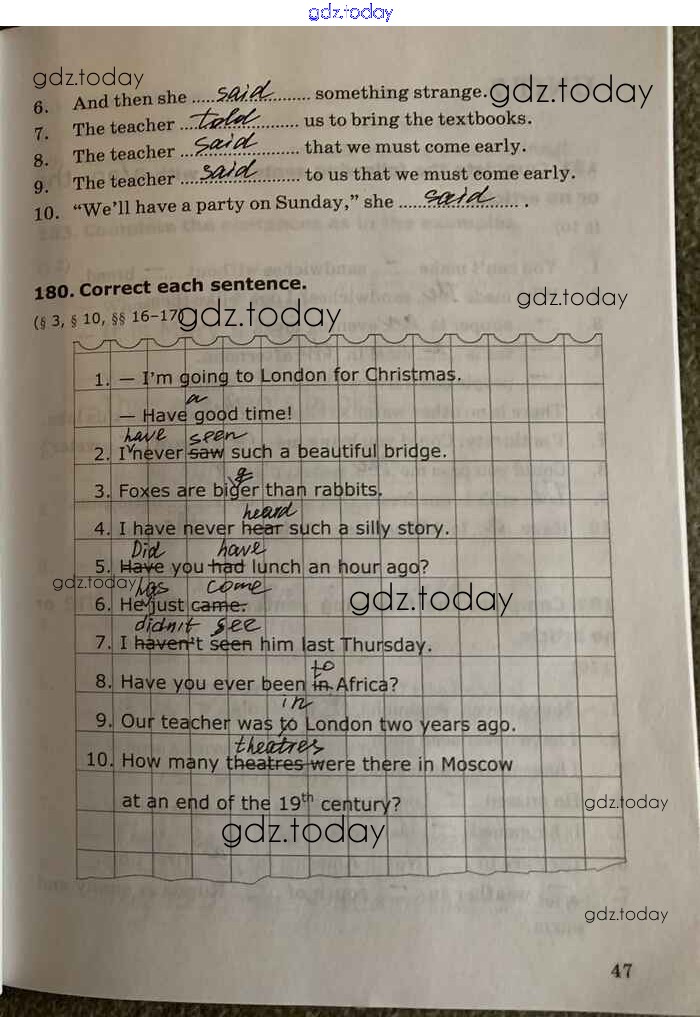 gdz.today
gdz.today
6. And then she ..... said ........ something strange. gdz.today
7. The teacher .... told ........ us to bring the textbooks.
8. The teacher ... said .......... that we must come early.
9. The teacher .... said ......... to us that we must come early.
10. “We’ll have a party on Sunday,” she ..... said ...... .
180. Correct each sentence.
gdz.today
(§ 3, § 10, §§ 16–17) gdz.today
1. — I’m going to London for Christmas.
a
— Have good time!
have seen
2. I never saw such a beautiful bridge.
g
3. Foxes are biger than rabbits.
heard
4. I have never hear such a silly story.
Did have
5. Have you had lunch an hour ago?
gdz.today has come
6. He just came. gdz.today
didn't see
7. I haven’t seen him last Thursday.
to
8. Have you ever been in Africa?
in
9. Our teacher was to London two years ago.
theatres
10. How many theatres were there in Moscow
at an end of the 19th century? gdz.today
gdz.today
gdz.today
47